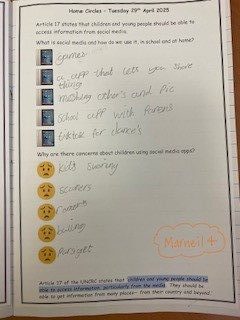 Home Circles – Tuesday 29th April 2025
Article 17 states that children and young people should be able to
access information from social media.
What is social media and how do we use it, in school and at home?
games
a app that lets you share
things
other's and Pic
school app with Parens
tiktok for dance's
Why are there concerns about children using social media apps?
kid's
scamers
bulling
Article 17 of the UNCRC states that children and young people should be
able to access information, particularly from the media. They should be
able to get information from many places– from their country and beyond.